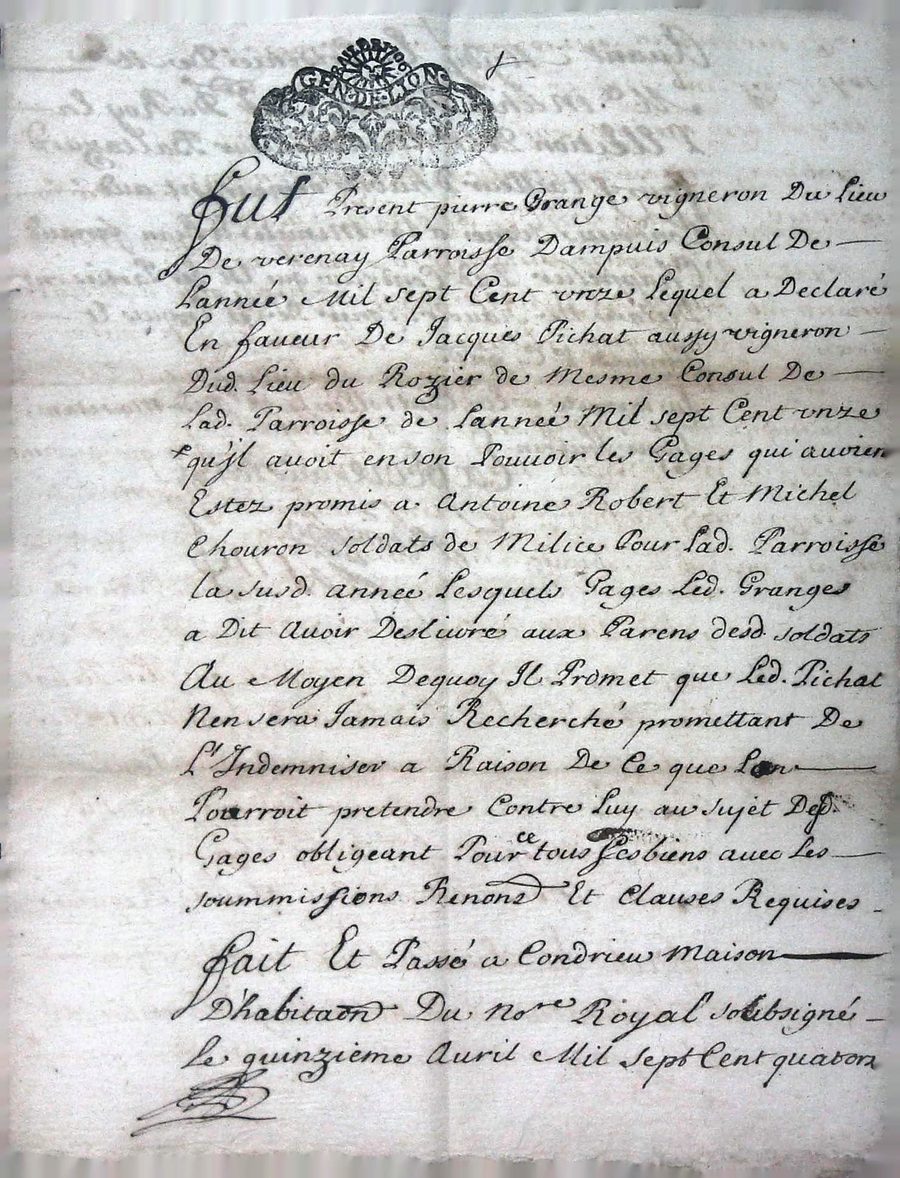 GEN·DE·LION
fut Present pierre Grange vigneron Du Lieu
De verenay Parroisse Dampuis Consul De
Lannée Mil sept Cent vnze Lequel a Declaré
En faueur De Jacques Pichat aussy vigneron
Dud. Lieu du Rozier de Mesme Consul De
Lad. Parroisse de Lanneé Mil sept Cent vnze
qu'jl avoit en son Pouvoir les Gages qui avoien
Estez promis a Antoine Robert Et Michel
Chouron soldats de Milice Pour Lad. Parroisse
la susd. anneé Lesquels Gages Led. Granges
a Dit Avoir Deslivré aux Parens desd. soldats
Au Moyen Dequoy Il Promet que Led. Pichat
Nen sera Jamais Recherché promettant De
L'Indemniser a Raison De Ce que Lon
Pourroit pretendre Contre Luy au sujet Desd.
Gages obligeant Pour ce tous ses biens avec Les
soummissions Renond Et Clauses Requises
fait Et Passé a Condrieu Maison
D'habitaon Du Nore Royal soubsigné
Le quinzieme Auril Mil sept Cent quatorz